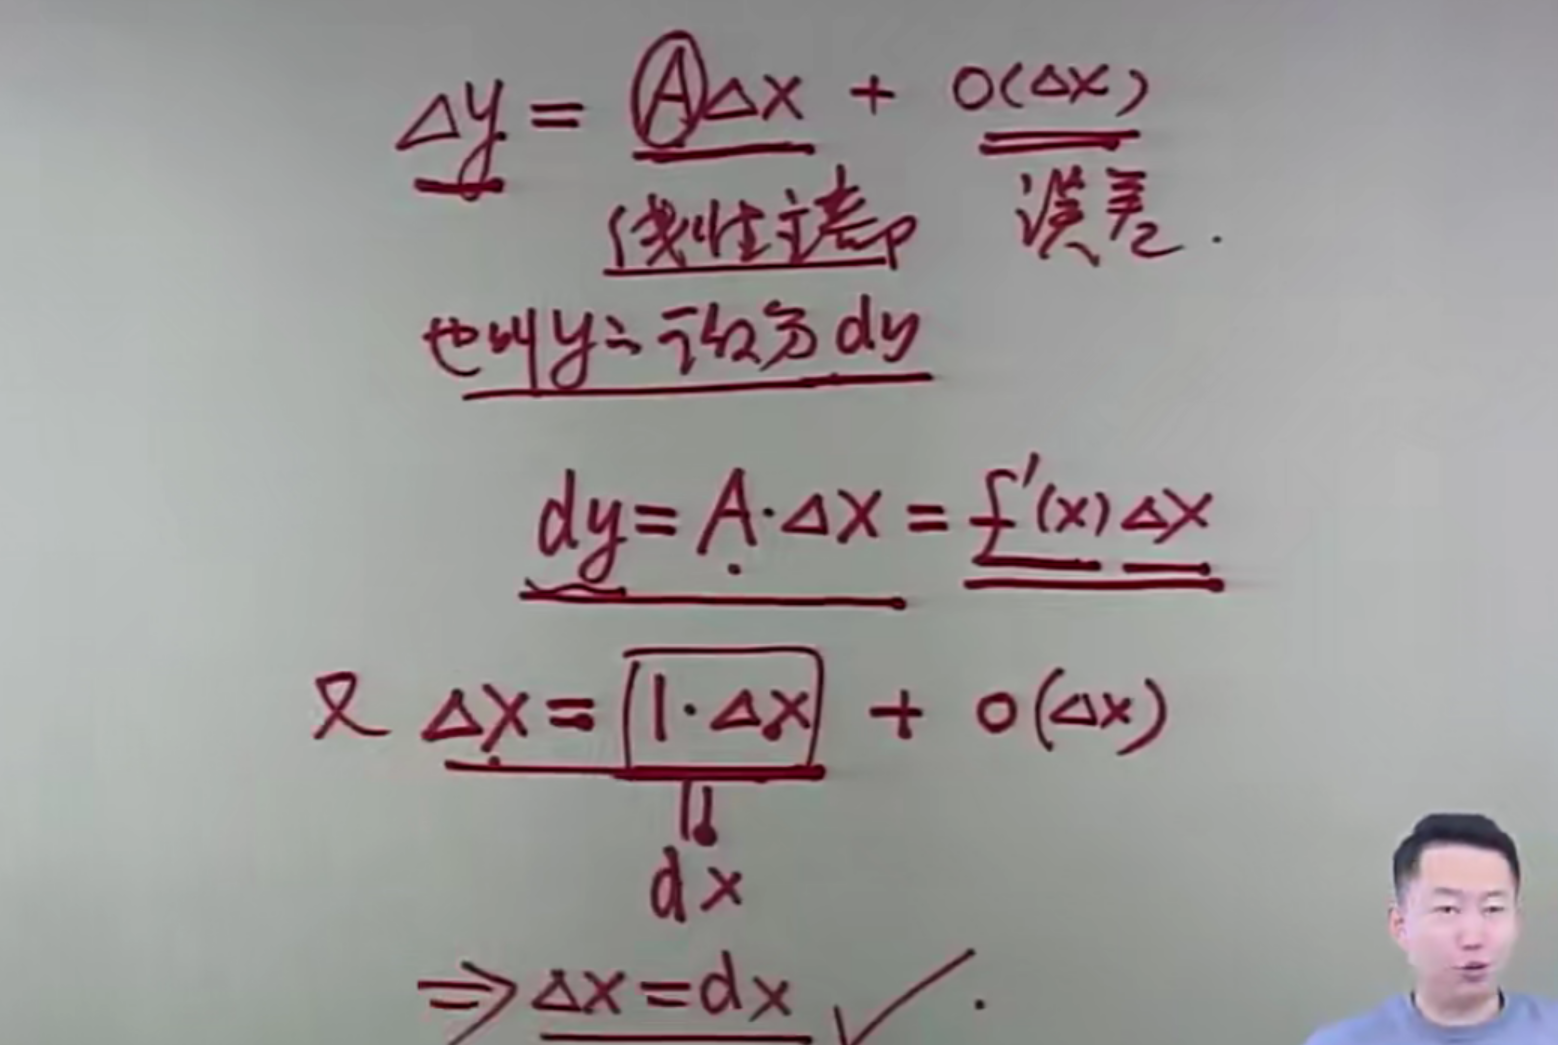 Δy = AΔx + o(Δx)
线性主部 误差.
也叫y的微分dy
dy = A·Δx = f'(x)Δx
又 Δx = 1·Δx + o(Δx)
dx
⇒ Δx = dx ✓.